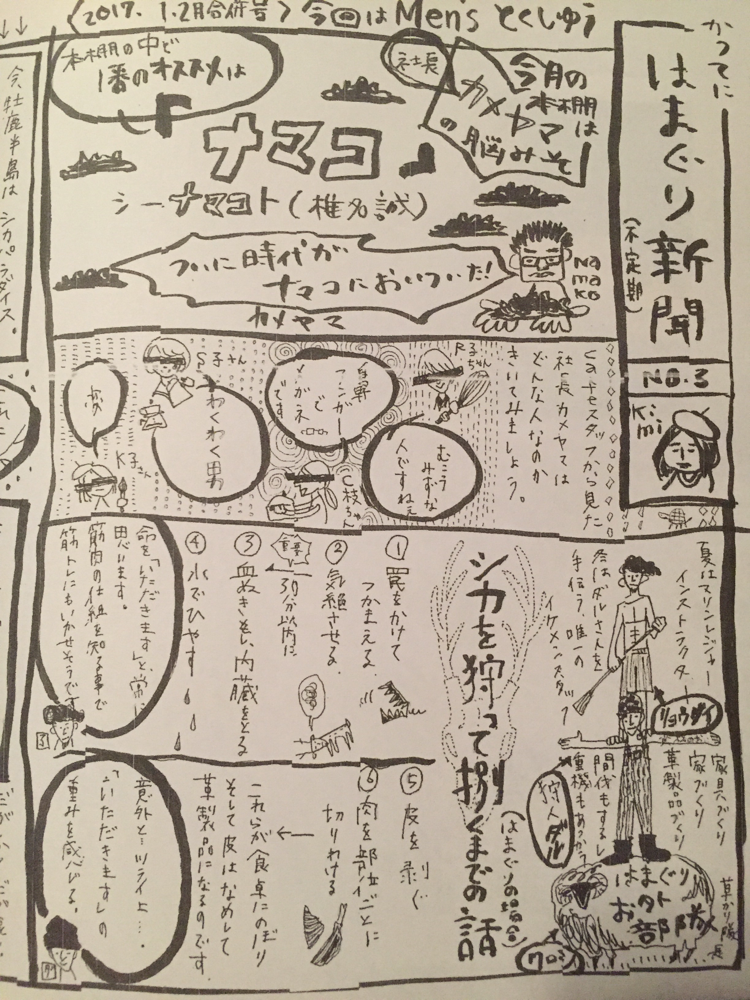 〈2017. 1.2月合併号〉今回はMen'sとくしゅう
かってに
はまぐり新聞
(不定期)
NO.3
Kimi
今月の
本棚は
カメヤマ
の脳みそ
社長
本棚の中で
1番のオススメは
ナマコ
シーナマコト(椎名誠)
ついに時代が
ナマコにおいついた!
カメヤマ
Namako
Cafeスタッフから見た
社長カメヤマは
どんな人なのか
きいてみましょう。
R子ちゃん
むこう
みずな
人ですねぇ
C枝ちゃん
メガネ
です
S子さん
わくわく男
K子さん
夏はマリンレジャー
インストラクター
冬はダルさんを
手伝う、唯一の
イケメンスタッフ
リョウダイ
家具づくり
家づくり
革製品づくり
間伐もするし
重機もあつかう
狩人ダル
草かり隊長
はまぐり
おタト
部隊
クロミ
シカを狩って捌くまでの話
(はまぐりの場合)
①罠をかけて
つかまえる
②気絶させる
重要
30分以内に
③血ぬきをし、内蔵をとる
④水でひやす
命を「いただきます」と、常に
思います。
筋肉の仕組を知る事で
筋トレにもいかせそうです
⑤皮を剥ぐ
⑥肉を部位ごとに
切りわける
これらが食卓にのぼり
そして皮はなめして
革製品になるのです。
意外と…ツライよ…。
「いただきます」の
重みを感じる。
今、牡鹿半島は
シカパラダイス。